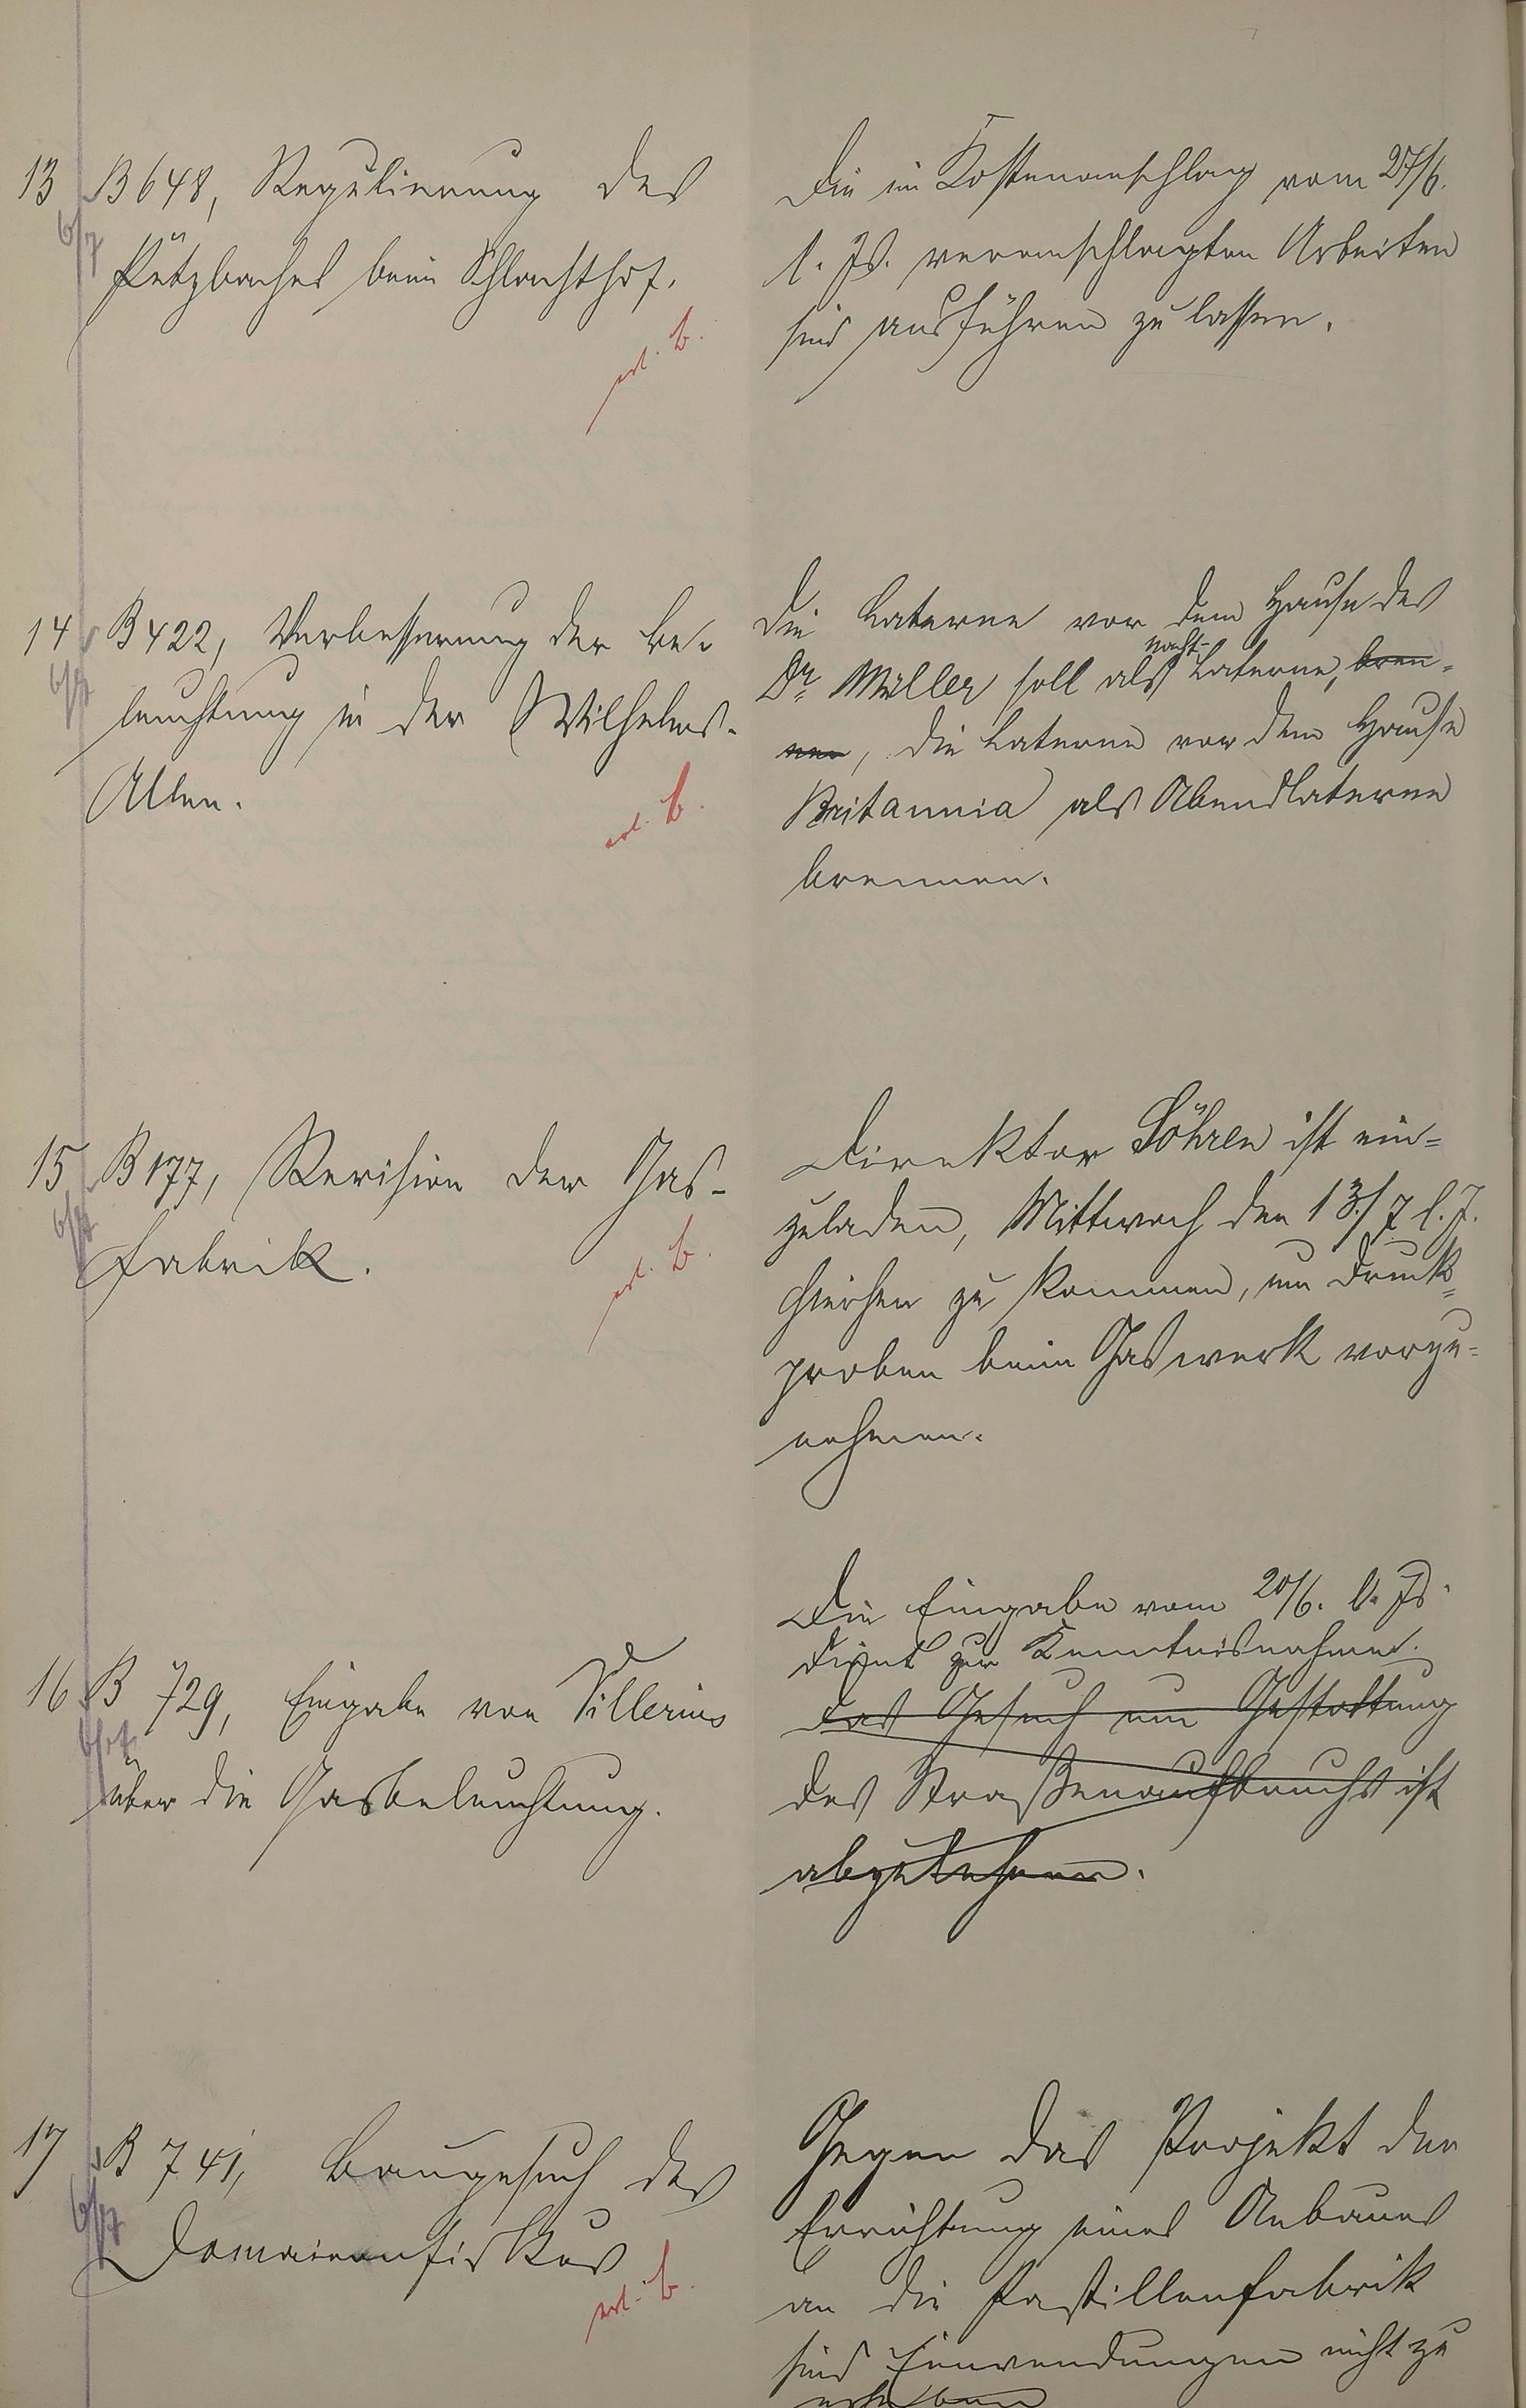 13 B 648, Regulierung des
Pützbaches beim Schlachthof.
erl. b.
Die im Kostenanschlag vom 27/6.
l. Js. veranschlagten Arbeiten
sind ausführen zu lassen.
14 B 422, Verbesserung der Be-
leuchtung in der Wilhelms-
Allee.
erl. b.
Die Laterne vor dem Hause des
Dr. Müller soll als Nacht-Laterne, bren-
nen, die Laterne vor dem Hause
Britannia als Abendlaterne
brennen.
15 B 177, Revision der Gas-
fabrik.
erl. b.
Direktor Söhren ist ein-
zuladen, Mittwoch den 13./7 l. J.
hierher zu kommen, um Druck-
proben beim Gaswerk vorzu-
nehmen.
16 B 729, Eingabe von Sillerius
über die Gasbeleuchtung.
Die Eingabe vom 20/6. l. Js.
dient zur Kenntnisnahme.
Das Gesuch um Gestattung
des Straßenaufbruchs ist
abzulehnen.
17 B 741, Baugesuch des
Domainenfiskus
erl. b.
Gegen das Projekt der
Errichtung eines Anbaues
an die Pastillenfabrik
sind Einwendungen nicht zu
erheben